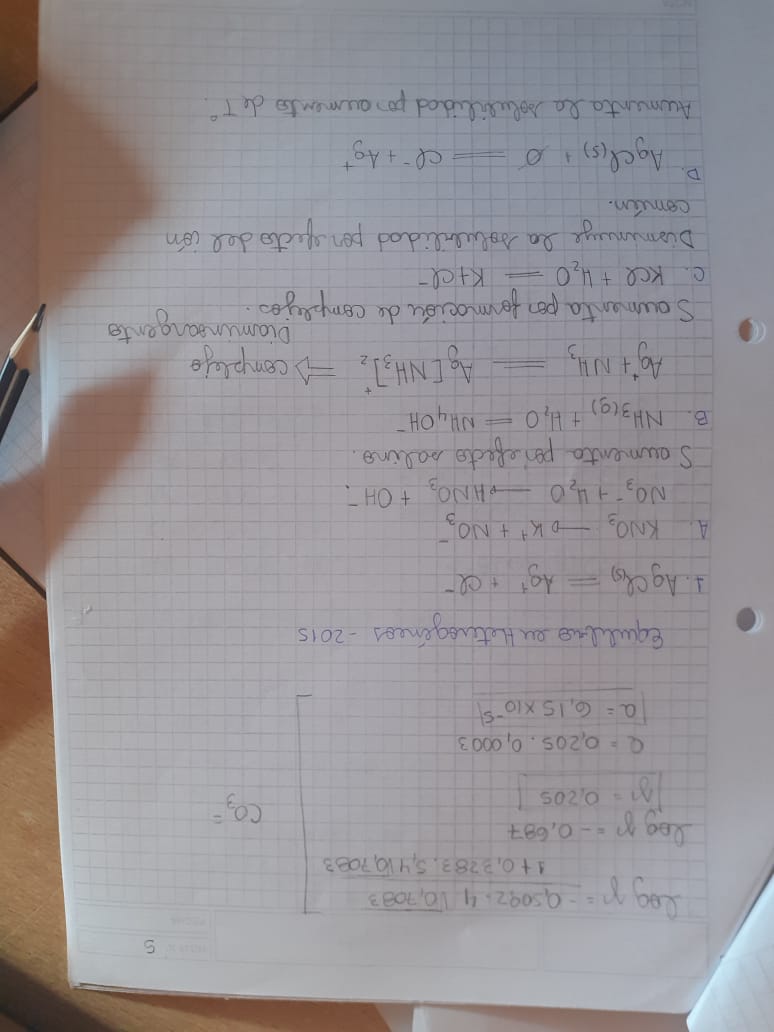 5
log γ = -0,5092 . 4 √0,7083
1 + 0,3283 . 5,4 √0,7083
log γ = - 0,687
γ = 0,205
CO₃⁼
a = 0,205 . 0,0003
a = 6,15 x 10⁻⁵
Equilibrio en Heterogéneos - 2015
1. AgCl(s) = Ag⁺ + Cl⁻
A. KNO₃ → K⁺ + NO₃⁻
NO₃⁻ + H₂O → HNO₃ + OH⁻.
S aumenta por efecto salino.
B. NH₃(g) + H₂O = NH₄OH⁻
Ag⁺ + NH₃ = Ag[NH₃]₂⁺ ⇒ complejo
Diaminoargento
S aumenta por formación de complejos.
C. KCl + H₂O = K+Cl⁻
Disminuye la solubilidad por efecto del ión
común.
D.
AgCl(s) + Ø = Cl⁻ + Ag⁺
Aumenta la solubilidad por aumento de T°.